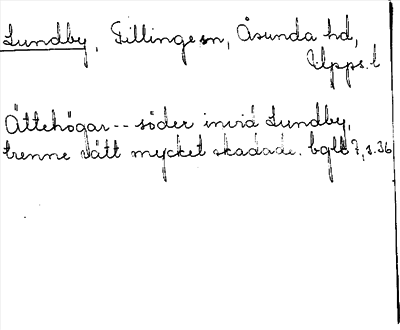 Lundby, Tillinge sn, Åsunda hd,
Upps. l
Ättehögar -- söder invid Lundby,
trenne rätt mycket skadade. bglt 7, s. 36